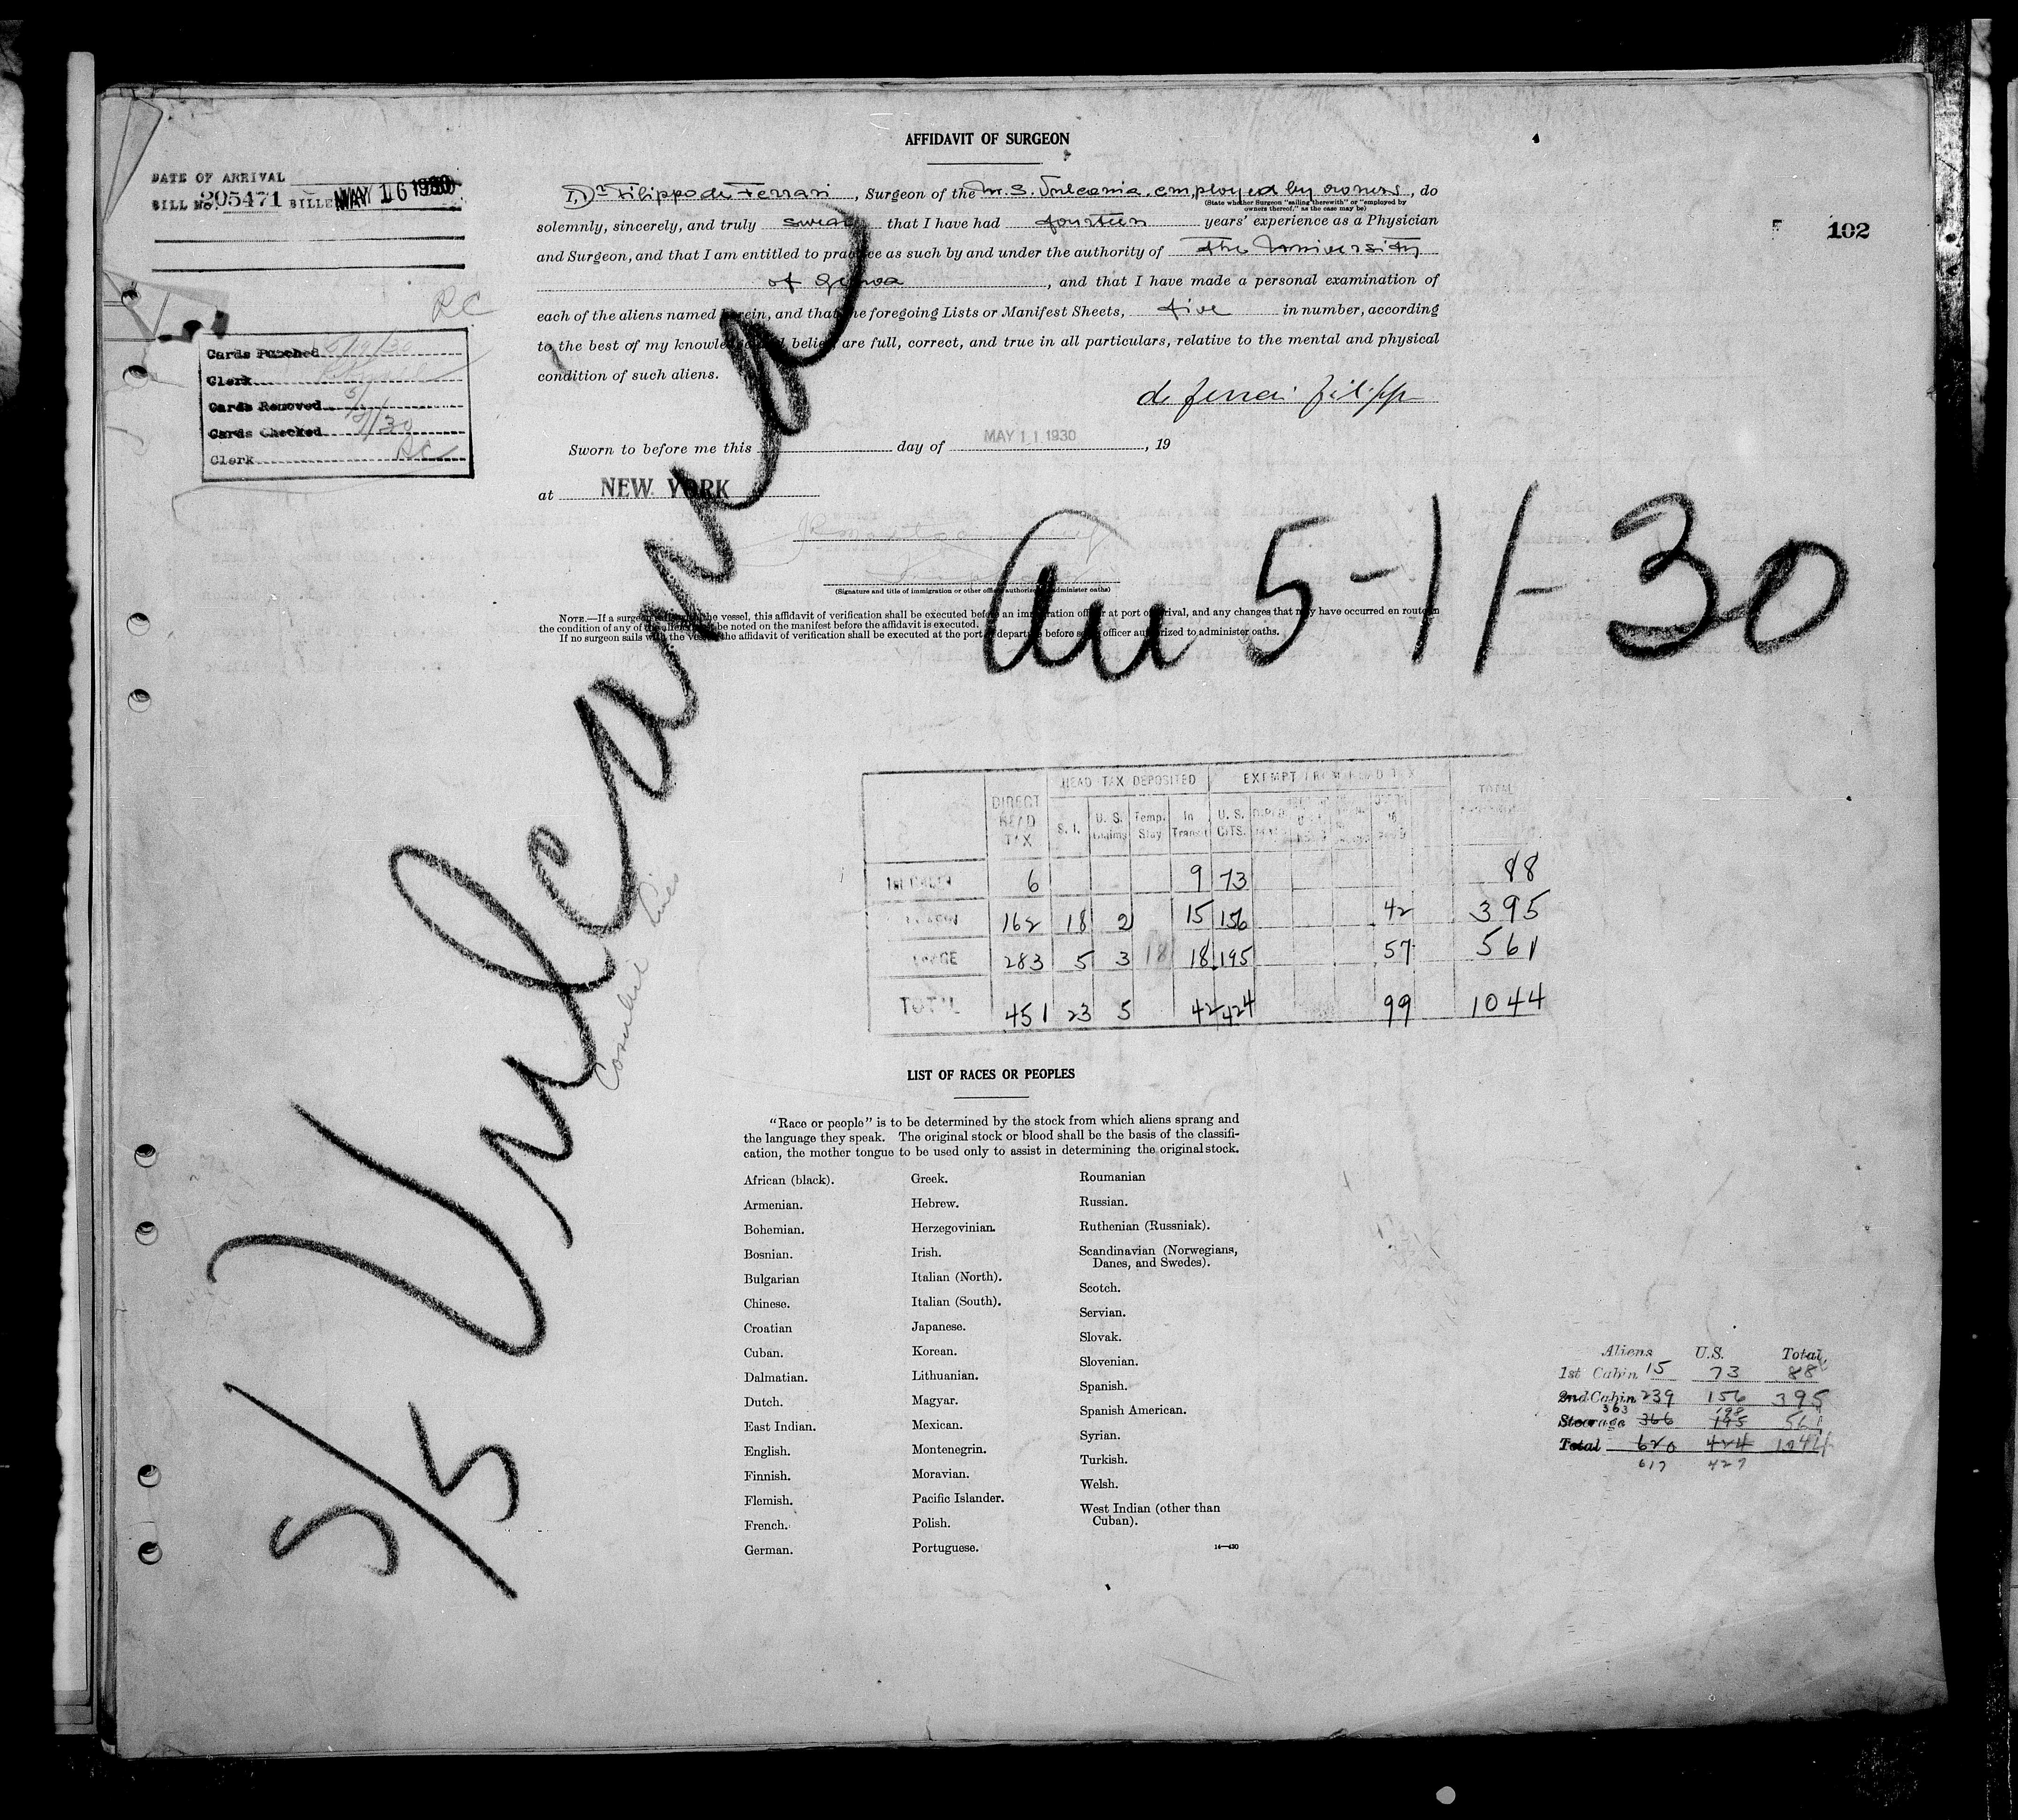 AFFIDAVIT OF SURGEON
DATE OF ARRIVAL
BILL No. 205471 BILLED MAY 16 1930
102
I, Dr Filippo de Ferrari, Surgeon of the M.S. Vulcania employed by owners, do
(State whether Surgeon "sailing therewith" or "employed by
owners thereof," as the case may be)
solemnly, sincerely, and truly swear that I have had fourteen years' experience as a Physician
and Surgeon, and that I am entitled to practice as such by and under the authority of the University
of Genoa, and that I have made a personal examination of
each of the aliens named herein, and that the foregoing Lists or Manifest Sheets, five in number, according
to the best of my knowledge and belief are full, correct, and true in all particulars, relative to the mental and physical
condition of such aliens.
de Ferrari Filippo
RC
Cards Punched 5/19/30
Clerk
Cards Removed
Cards Checked
Clerk RC
Sworn to before me this day of MAY 11 1930, 19
at NEW YORK
(Signature and title of immigration or other officer authorized to administer oaths)
NOTE.—If a surgeon sails with the vessel, this affidavit of verification shall be executed before an immigration officer at port of arrival, and any changes that may have occurred en route in
the condition of any of the aliens shall be noted on the manifest before the affidavit is executed.
If no surgeon sails with the vessel, the affidavit of verification shall be executed at the port of departure before some officer authorized to administer oaths.
S/S Vulcania
Cosulich Line
Arr 5-11-30
HEAD TAX DEPOSITED EXEMPT FROM HEAD TAX
DIRECT HEAD TAX S. I. U. S. Claims Temp. Stay In Transit U. S. CITS. TOTAL
1st CABIN 6 9 73 88
162 18 2 15 156 42 395
283 5 3 18 18 195 57 561
TOTAL 451 23 5 42 424 99 1044
LIST OF RACES OR PEOPLES
"Race or people" is to be determined by the stock from which aliens sprang and
the language they speak. The original stock or blood shall be the basis of the classifi-
cation, the mother tongue to be used only to assist in determining the original stock.
African (black).
Armenian.
Bohemian.
Bosnian.
Bulgarian
Chinese.
Croatian
Cuban.
Dalmatian.
Dutch.
East Indian.
English.
Finnish.
Flemish.
French.
German.
Greek.
Hebrew.
Herzegovinian.
Irish.
Italian (North).
Italian (South).
Japanese.
Korean.
Lithuanian.
Magyar.
Mexican.
Montenegrin.
Moravian.
Pacific Islander.
Polish.
Portuguese.
Roumanian
Russian.
Ruthenian (Russniak).
Scandinavian (Norwegians,
Danes, and Swedes).
Scotch.
Servian.
Slovak.
Slovenian.
Spanish.
Spanish American.
Syrian.
Turkish.
Welsh.
West Indian (other than
Cuban).
14—430
Aliens U.S. Total
1st Cabin 15 73 88
2nd Cabin 239 156 395
363 198
Steerage 366 195 561
Total 620 424 1044
617 427